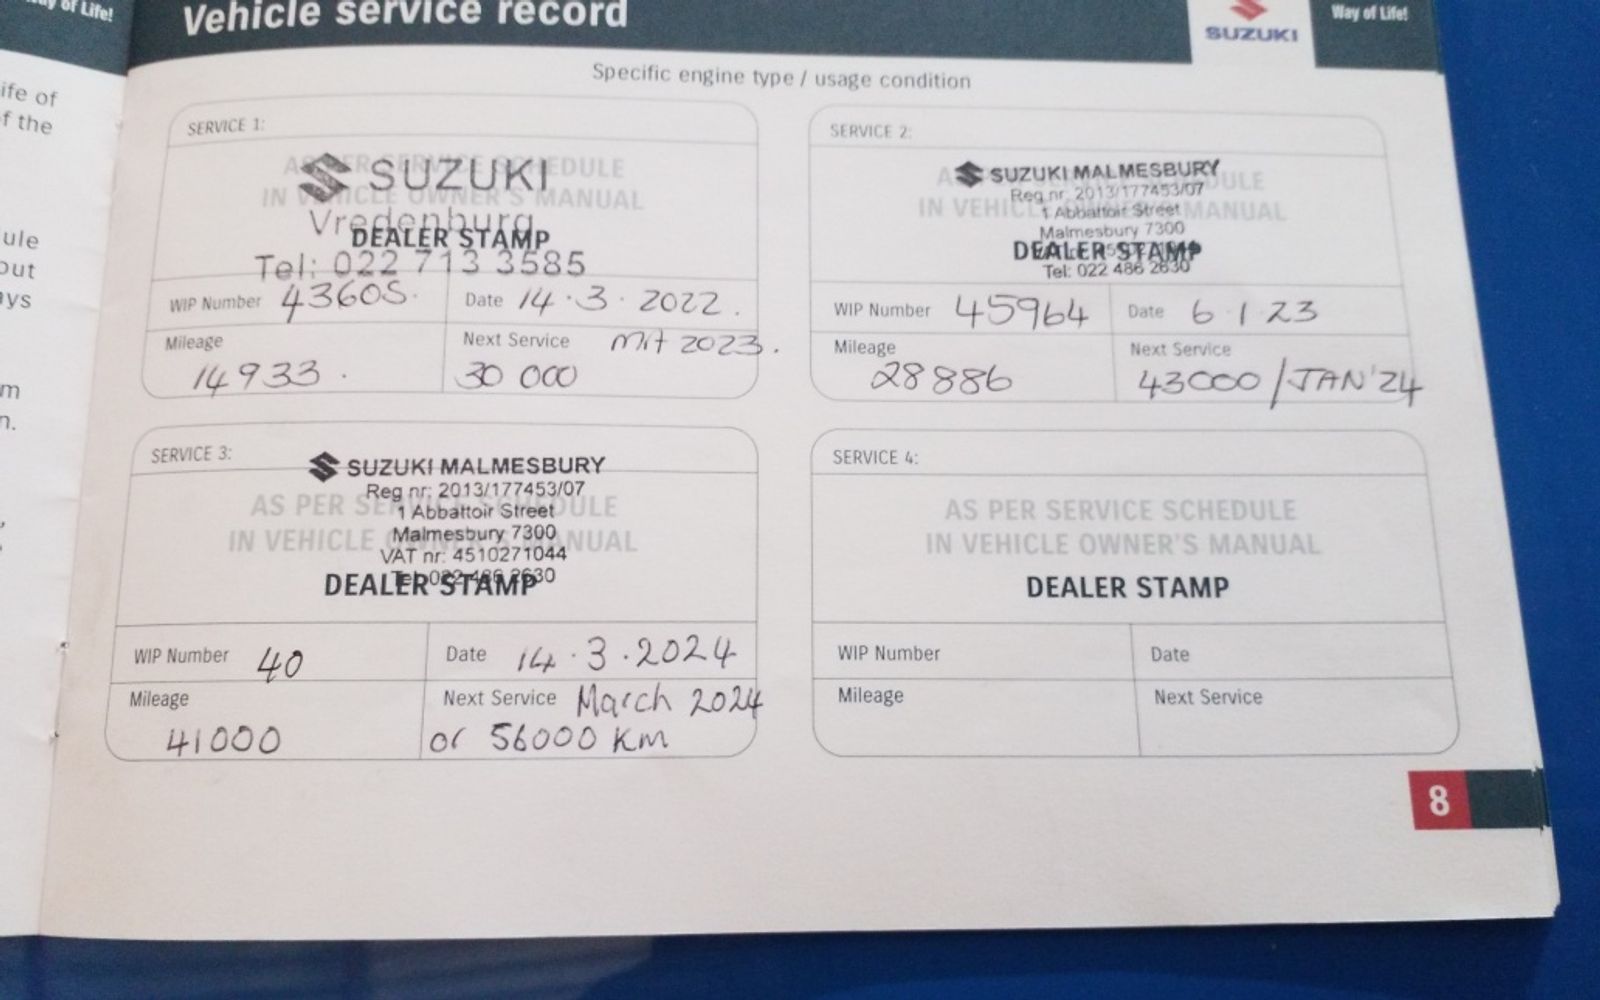 Way of Life!
Vehicle service record
SUZUKI
Way of Life!
ife of
f the
ule
out
ays
m
n.
Specific engine type / usage condition
SERVICE 1:
AS PER SERVICE SCHEDULE
IN VEHICLE OWNER'S MANUAL
SUZUKI
Vredenburg
DEALER STAMP
Tel: 022 713 3585
WIP Number 43605.
Date 14.3.2022.
Mileage
14933.
Next Service MRT 2023.
30 000
SERVICE 2:
AS PER SERVICE SCHEDULE
IN VEHICLE OWNER'S MANUAL
SUZUKI MALMESBURY
Reg nr: 2013/177453/07
1 Abbattoir Street
Malmesbury 7300
DEALER STAMP
Tel: 022 486 2630
WIP Number 45964
Date 6.1.23
Mileage
28886
Next Service
43000/JAN'24
SERVICE 3:
AS PER SERVICE SCHEDULE
IN VEHICLE OWNER'S MANUAL
SUZUKI MALMESBURY
Reg nr: 2013/177453/07
1 Abbattoir Street
Malmesbury 7300
VAT nr: 4510271044
Tel: 022 486 2630
DEALER STAMP
WIP Number 40
Date 14.3.2024
Mileage
41000
Next Service March 2024
or 56000 km
SERVICE 4:
AS PER SERVICE SCHEDULE
IN VEHICLE OWNER'S MANUAL
DEALER STAMP
WIP Number
Date
Mileage
Next Service
8